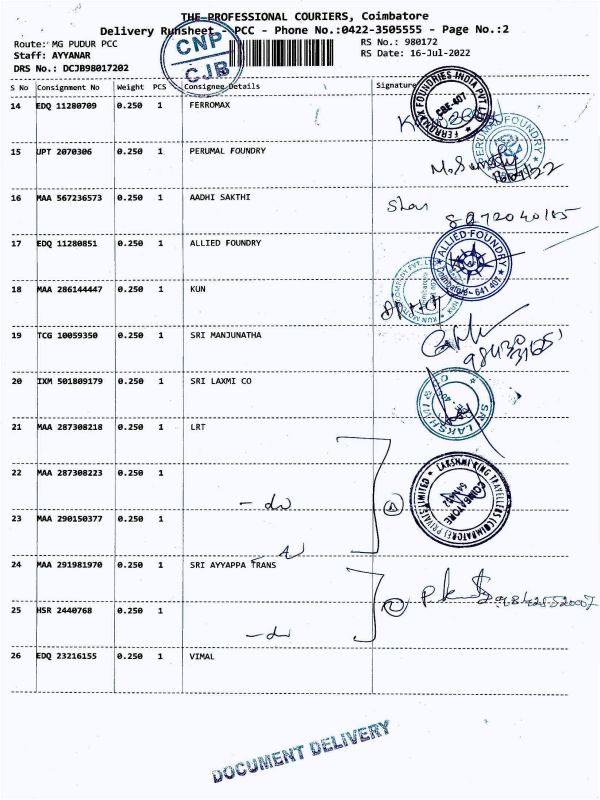 THE PROFESSIONAL COURIERS, Coimbatore
Delivery Runsheet - PCC - Phone No.:0422-3505555 - Page No.:2
Route: MG PUDUR PCC
RS No.: 980172
Staff: AYYANAR
RS Date: 16-Jul-2022
DRS No.: DCJB98017202
CNP
CJB
S No Consignment No Weight PCS Consignee Details Signature
14 EDQ 11280709 0.250 1 FERROMAX
FERROMAX FOUNDRIES INDIA PVT LTD
CBE-407
15 UPT 2070306 0.250 1 PERUMAL FOUNDRY
PERUMAL FOUNDRY
16 MAA 567236573 0.250 1 AADHI SAKTHI
17 EDQ 11280851 0.250 1 ALLIED FOUNDRY
ALLIED FOUNDRY
Coimbatore - 641 407
18 MAA 286144447 0.250 1 KUN
19 TCG 10059350 0.250 1 SRI MANJUNATHA
20 IXM 501809179 0.250 1 SRI LAXMI CO
21 MAA 287308218 0.250 1 LRT
22 MAA 287308223 0.250 1
- do
LAKSHMI RING TRAVELLERS (COIMBATORE) PRIVATE LIMITED
COIMBATORE
23 MAA 290150377 0.250 1
24 MAA 291981970 0.250 1 SRI AYYAPPA TRANS
25 HSR 2440768 0.250 1
- do
26 EDQ 23216155 0.250 1 VIMAL
DOCUMENT DELIVERY